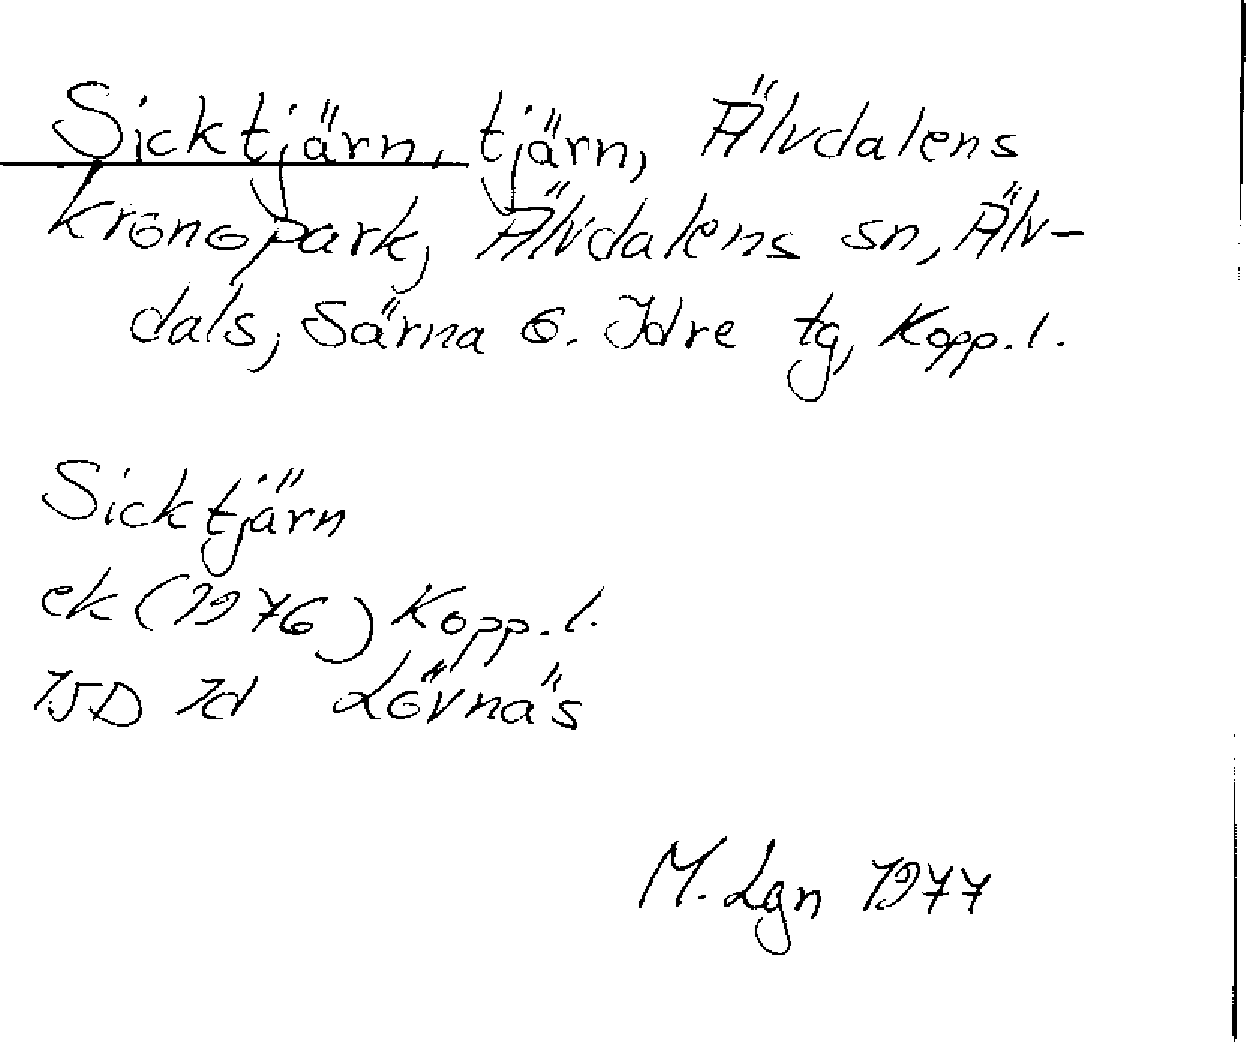 Sicktjärn, tjärn, Älvdalens
kronopark, Älvdalens sn, Älv-
dals, Särna o. Idre tg, Kopp. l.
Sicktjärn
ek (1976) Kopp. l.
15D 1d Lövnäs
M. Lgn 1977